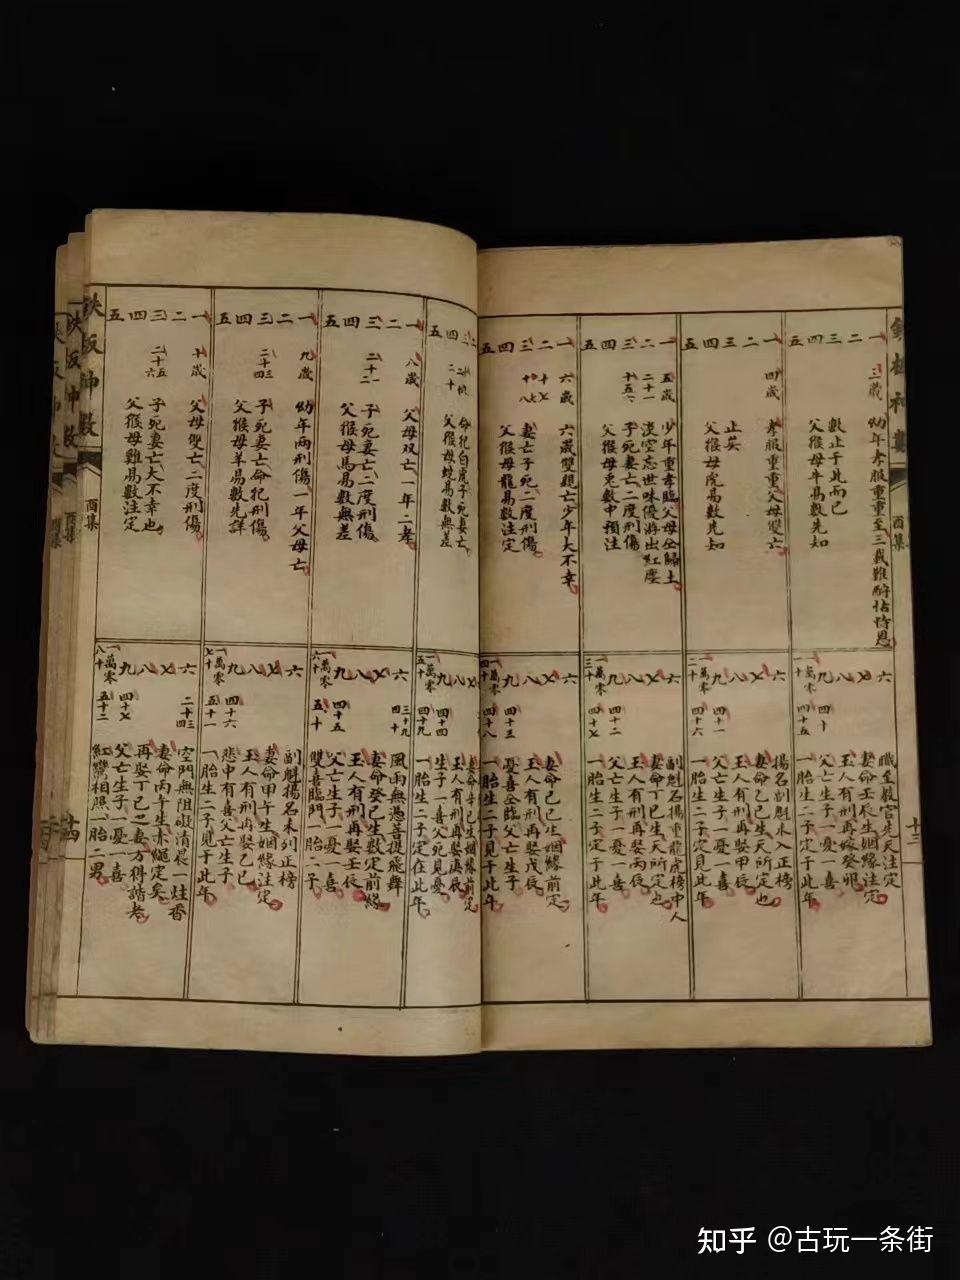 鐵板神數
酉集
十三
一 三歲 幼年孝服重重至三載難酬怙恃恩
二
三 數止于此而已
四 父猴母牛馬數先知
五
六 職至教官先天注定
七 妻命壬辰生姻緣注定
八 王人有刑再嫁癸卯
九 四十 父亡生子一憂一喜
一萬零一十 四十五 一胎生二子定于此年
一 四歲 孝服重重父母雙亡
二
三 止妄
四 父猴母虎易數先知
五
六 揚名副魁未入正榜
七 妻命乙巳生天所定也
八 王人有刑再娶甲辰
九 四十一 父亡生子一憂一喜
一萬零二十 四十六 一胎生二子定見此年
一 五歲 少年重孝臨父母仝歸土
二 二十一 淡空忘世味優游出紅塵
三 十五六 子死妻亡二度刑傷
四 父猴母兎數中預注
五
六 副魁名揚重龍虎榜中人
七 妻命丁巳生天所定也
八 王人有刑再娶丙辰
九 四十二 父亡生子一憂一喜
一萬零三十 四十七 一胎生二子定于此年
一 六歲 六歲雙親亡少年大不幸
二 十七
三 十八 妻亡子死二度刑傷
四 父猴母龍易數注定
五
六
七 妻命己巳生姻緣前定
八 王人有刑再娶戊辰
九 四十三 憂喜仝臨父亡生子
一萬零四十 四十八 一胎生二子定見此年
二
三 命犯白虎子死妻亡
四 二十 父猴母蛇易數無差
五
七 妻命辛巳生姻緣前定
八 王人有刑再娶庚辰
九 四十四 生子一喜父死見憂
一萬零五十 四十九 一胎生二子定在此年
一 八歲 父母双亡一年二孝
二
三 二十二 子死妻亡二度刑傷
四 父猴母馬易數無差
五
六 三十九 風雨無憑善提飛舞
七 四十 妻命癸巳生數定前緣
八 王人有刑再娶壬辰
九 四十五 父亡生子一憂一喜
一萬零六十 五十 雙喜臨門一胎二子
一 九歲 幼年兩刑傷一年父母亡
二
三 二十三 子死妻亡命犯刑傷
四 二十四 父猴母羊易數先詳
五
六 副魁揚名未列正榜
七 妻命甲午生姻緣注定
八 王人有刑再娶乙巳
九 四十六 悲中有喜父亡生子
一萬零七十 五十一 一胎生二子見于此年
一 十歲 父母雙亡二度刑傷
二
三 二十五 子死妻亡大不幸也
四 二十六 父猴母雞易數注定
五
六 二十三 空門無阻礙清晨一炷香
七 妻命丙午生赤繩定矣
八 再娶丁巳之妻方得諧老
九 四十七 父亡生子一憂一喜
一萬零八十 五十二 紅鸞相照一胎二男
鉄板神數
酉集
十四
知乎 @古玩一条街